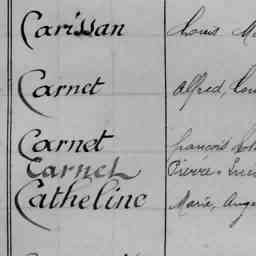 Carissan Louis
Carnet Alfred,
Carnet François
Carnet Pierre
Catheline Marie,